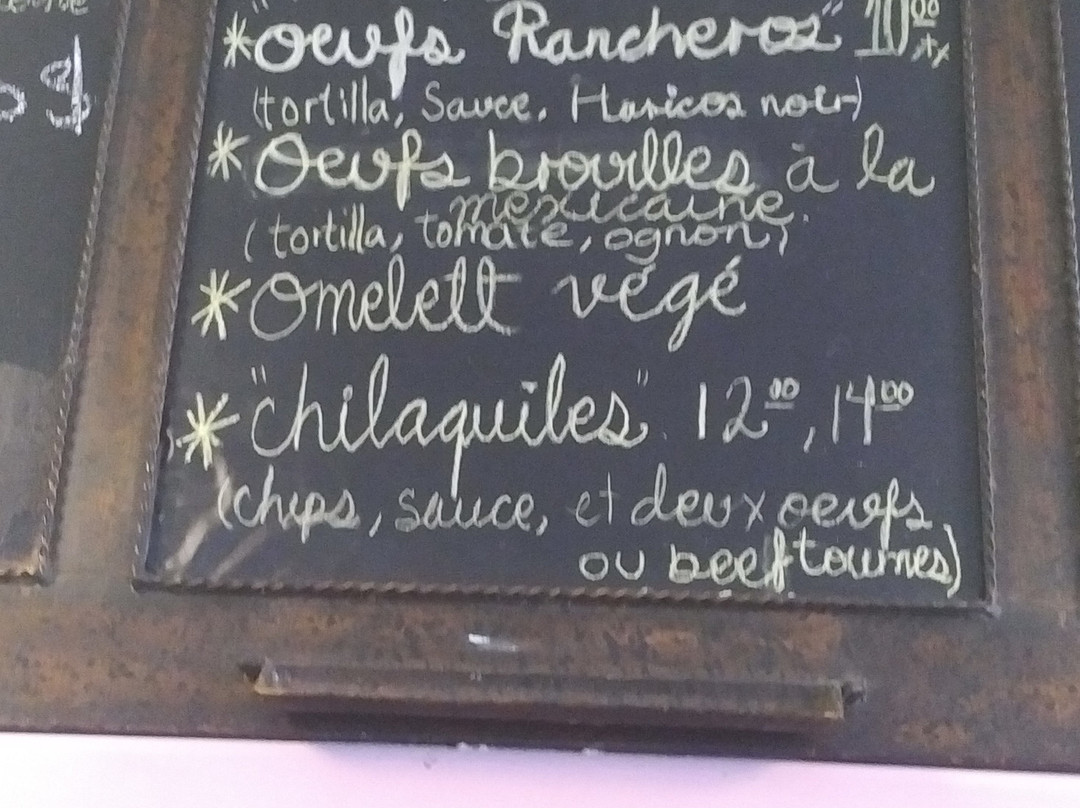 $
* "oeufs Rancheros" 10.00 +tx
(tortilla, Sauce, Haricos noir)
* Oeufs brouilles à la
mexicaine.
(tortilla, tomate, ognon)
* Omelett végé
* "chilaquiles" 12.00, 14.00
(chips, sauce, et deux oeufs
ou beef tournes)